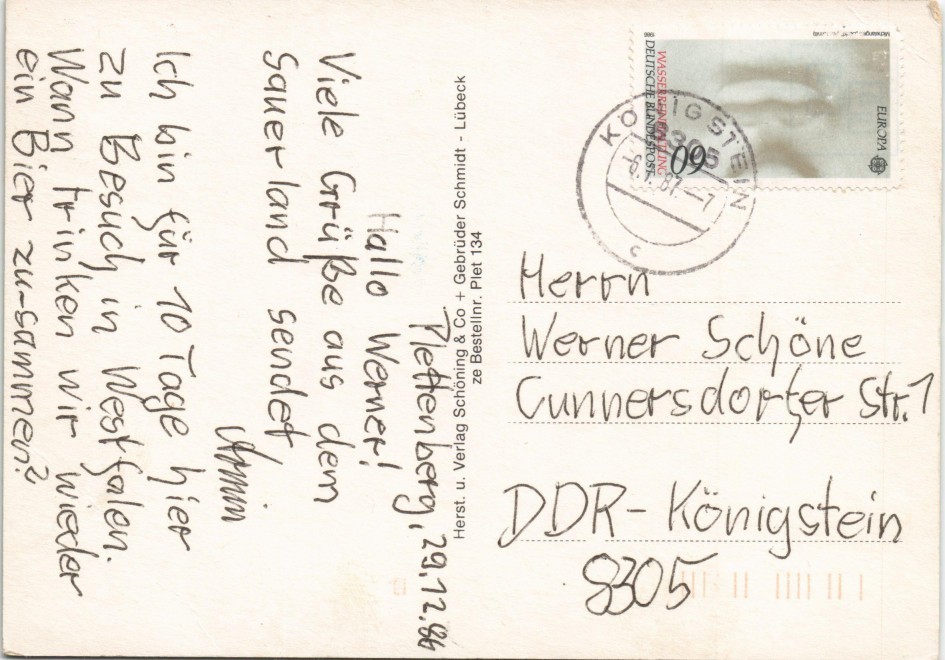 Plettenberg, 29.12.86
Hallo Werner!
Viele Grüße aus dem
Sauerland sendet
Armin
Ich bin für 10 Tage hier
zu Besuch in Westfalen.
Wann trinken wir wieder
ein Bier zu-sammen?
Herst. u. Verlag Schöning & Co + Gebrüder Schmidt - Lübeck
ze Bestellnr. Plet 134
1986
DEUTSCHE BUNDESPOST
WASSERREINHALTUNG
60
EUROPA
KÖNIGSTEIN
8305
-6.1.87.-7
c
Herrn
Werner Schöne
Cunnersdorfer Str. 1
DDR-Königstein
8305